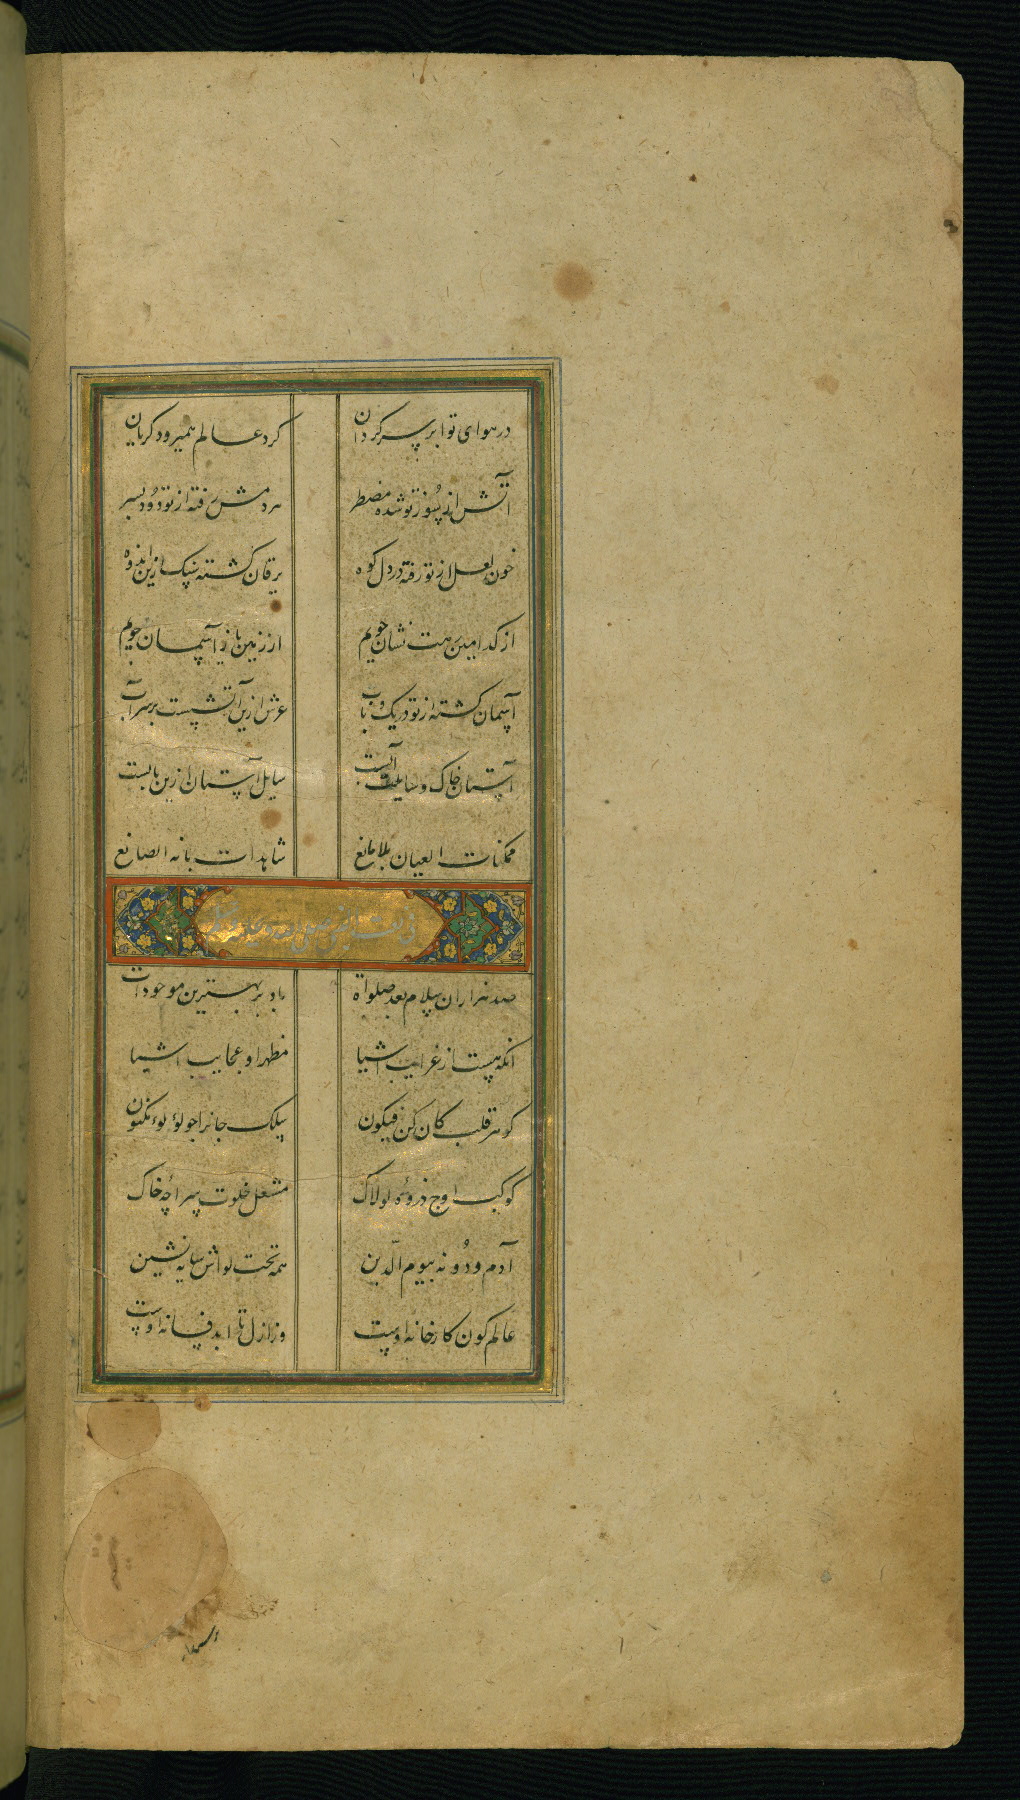 در هوای تو ابر سرکردان
کرد عالم همیرود کریان
آتش از سوز تو شده مضطر
مردمش رفته از تو دود بسر
خون لعل از تو رفته در دل کوه
یرقان کشته سنک ازین اندوه
از کدامین رهت نشان جویم
از زمین یا ز آسمان جویم
آسمان کشته از تو در تک و تاب
عرش ازین آتشست بر سر آب
آستان خاک و سایلت آبست
سایل آستان ازین بابست
ممکنات العیان بلا مانع
شاهدات بانه الصانع
فی نعت النبی صلی الله علیه
صد هزاران سلام بعد صلواة
باد بر بهترین موجودات
انکه هست از غرایب اشیا
مظهر او عجایب اشیا
کوهر قلب کان کن فیکون
سلک جانرا چو لؤلوء مکنون
کوکب اوج ذروهٔ لولاک
مشعل خلوت سراچهٔ خاک
آدم و دونه بیوم الدین
همه تحت لواش سایه نشین
عالم کون کارخانه اوست
وز ازل تا ابد فسانه اوست